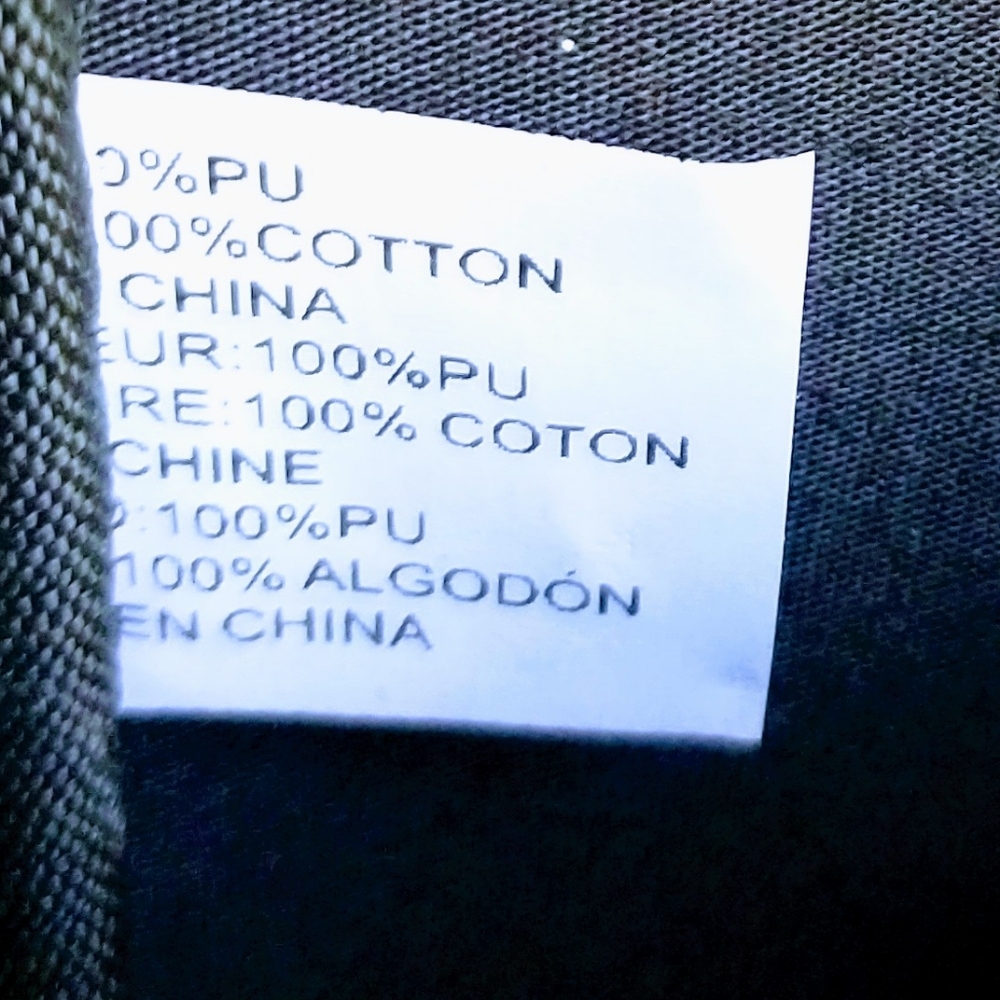 0%PU
00%COTTON
CHINA
EUR:100%PU
RE:100% COTON
CHINE
O:100%PU
100% ALGODÓN
EN CHINA